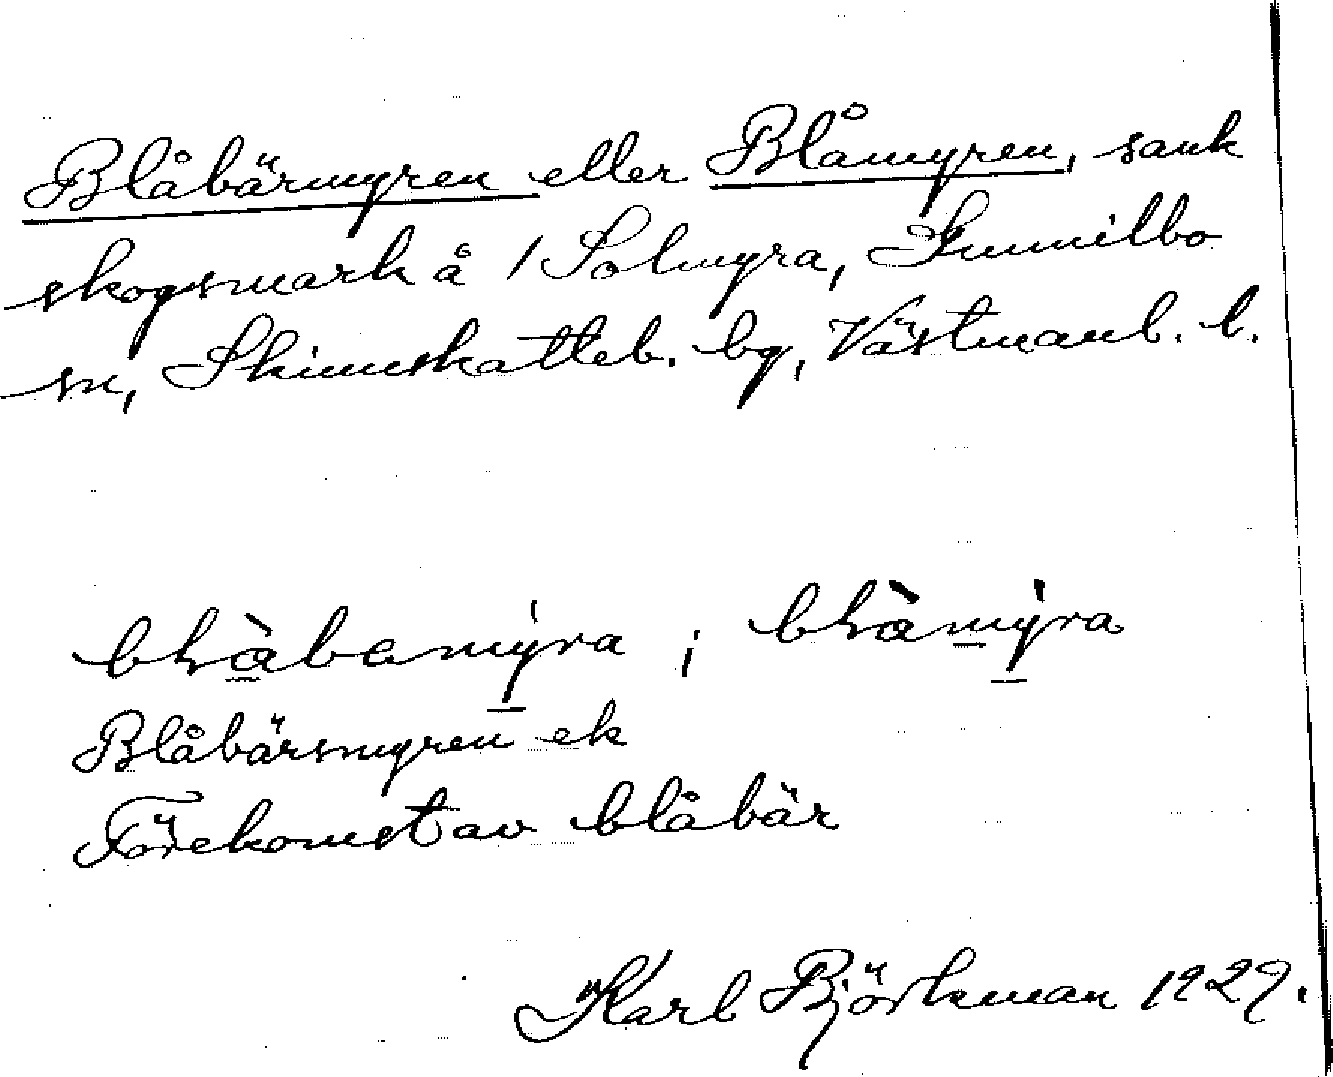 Blåbärmyren eller Blåmyren, sank
skogsmark å 1 Solmyra, Gunnilbo
sn, Skinnskatteb. bg, Västmanl. l.
blàbamýra; blàmýra
Blåbärsmyren ek
Förekomst av blåbär
Karl Björkman 1929.